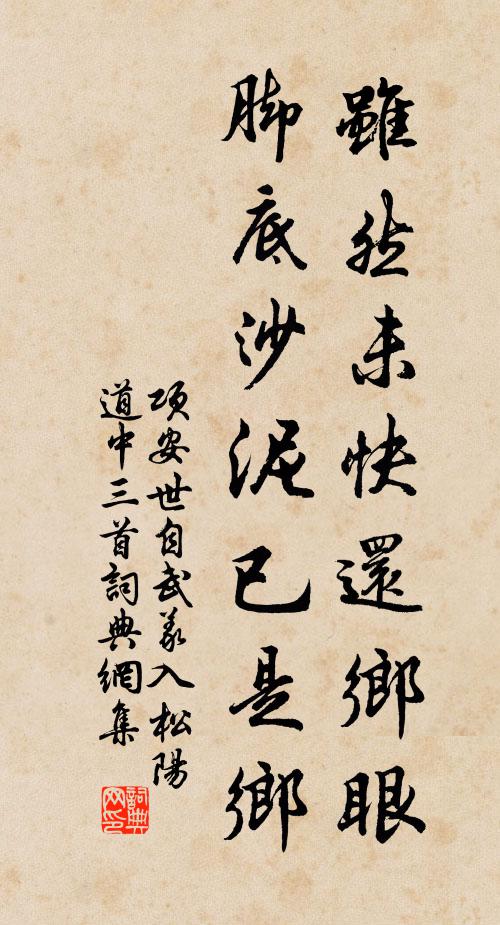 雖然未快還鄉眼
脚底沙泥已是鄉
項安世自武義入松陽
道中三首詞典網集
詞典
网印